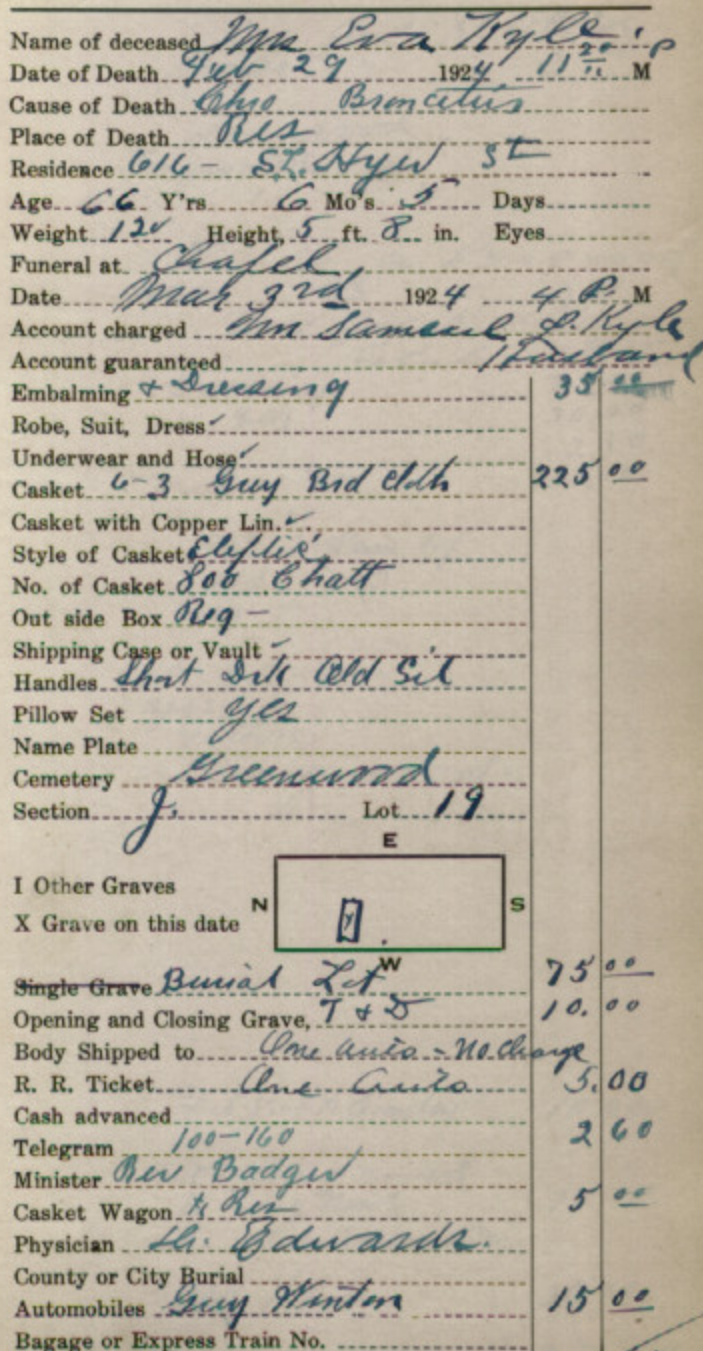 Name of deceased Mrs Eva Kyle
Date of Death Feb 29 1924 11 20 P M
Cause of Death Chro Broncetus
Place of Death Res
Residence 616 - St. Hyer St
Age 66 Y'rs 6 Mo's 5 Days
Weight 120 Height, 5 ft. 8 in. Eyes
Funeral at Chapel
Date Mar 3rd 1924 4 P. M
Account charged Mr Samuel Kyle
Account guaranteed Husband
Embalming + Dressing 35 00
Robe, Suit, Dress
Underwear and Hose
Casket 6-3 Grey Brd Cloth 225 00
Casket with Copper Lin.
Style of Casket Eleptic
No. of Casket 800 Chatt
Out side Box Reg -
Shipping Case or Vault
Handles Short Old Sil
Pillow Set yes
Name Plate
Cemetery Greenwood
Section J. Lot 19
E
I Other Graves
N S
X Grave on this date
W
Single Grave Burial Lot 75 00
Opening and Closing Grave, T & D 10.00
Body Shipped to One auto - No Charge
R. R. Ticket One Auto 5.00
Cash advanced
Telegram 100-160 2 60
Minister Rev Badger
Casket Wagon to Res 5 00
Physician Dr. Edwards.
County or City Burial
Automobiles Grey Winton 15 00
Bagage or Express Train No.